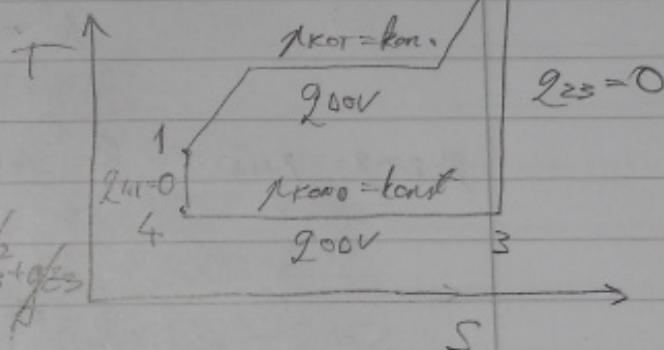 T
pkot=kon.
qdov
q23=0
1
q41=0
pkond=konst
4
qodv
3
S